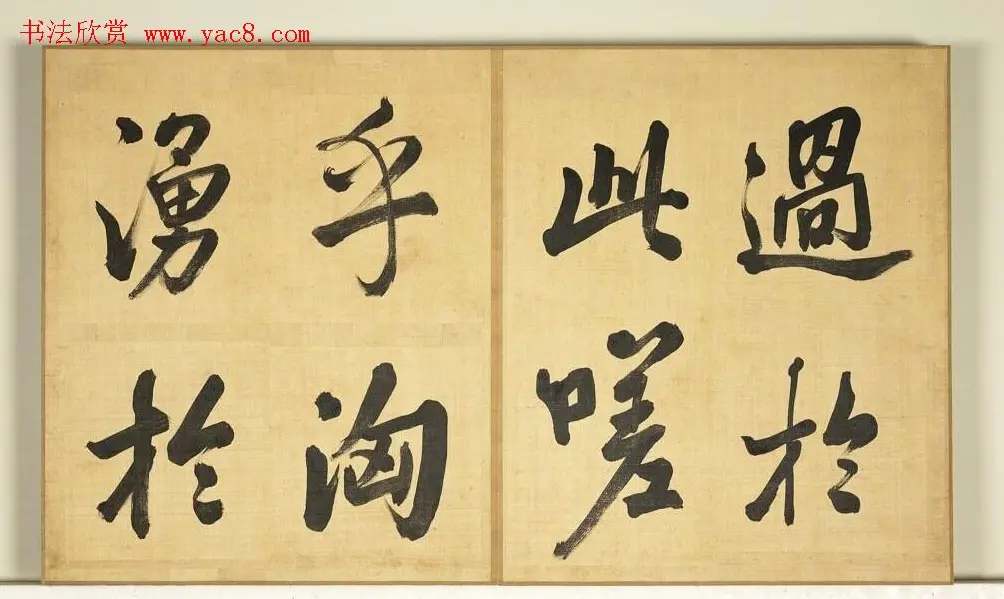 书法欣赏 www.yac8.com
過於
此嗟
乎洶
湧於